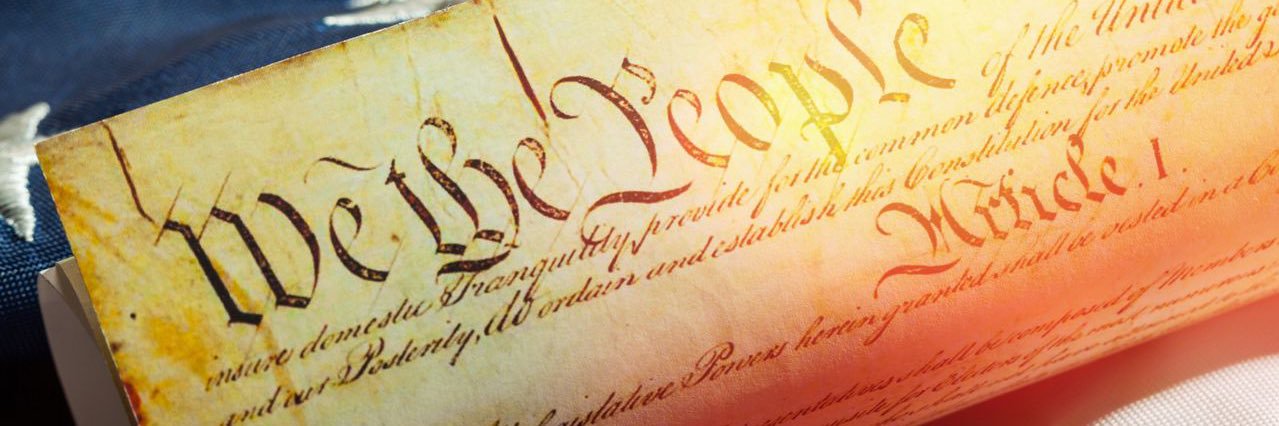 We the People of the United
insure domestic Tranquility, provide for the common defence, promote the
and our Posterity, do ordain and establish this Constitution for the United
Article. I.
Legislative Powers herein granted shall be vested in a
shall be composed of Members